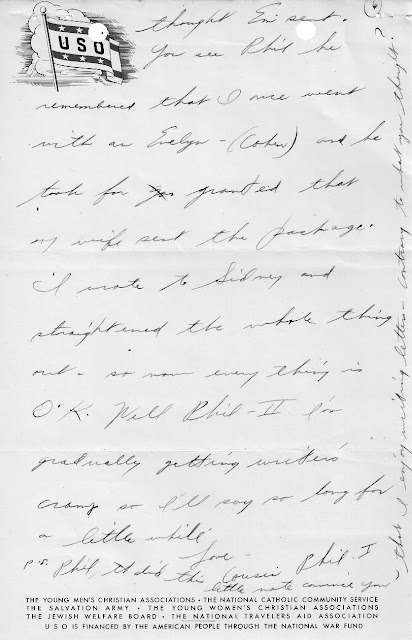 USO
thought Em sent.
You see Phil he
remembered that I once went
with an Evelyn - (Cohen) and he
took for granted that
my wife sent the package.
I wrote to Sidney and
straightened the whole thing
out - so now everything is
O.K. Well Phil - II I'm
gradually getting writers'
cramp so I'll say so long for
a little while
Love -
Cousin Phil. I
P.S. Phil, did this little note convince you
- that I enjoy writing letters - contrary to what you thought. ?
THE YOUNG MEN'S CHRISTIAN ASSOCIATIONS • THE NATIONAL CATHOLIC COMMUNITY SERVICE
THE SALVATION ARMY • THE YOUNG WOMEN'S CHRISTIAN ASSOCIATIONS
THE JEWISH WELFARE BOARD • THE NATIONAL TRAVELERS AID ASSOCIATION
USO IS FINANCED BY THE AMERICAN PEOPLE THROUGH THE NATIONAL WAR FUND